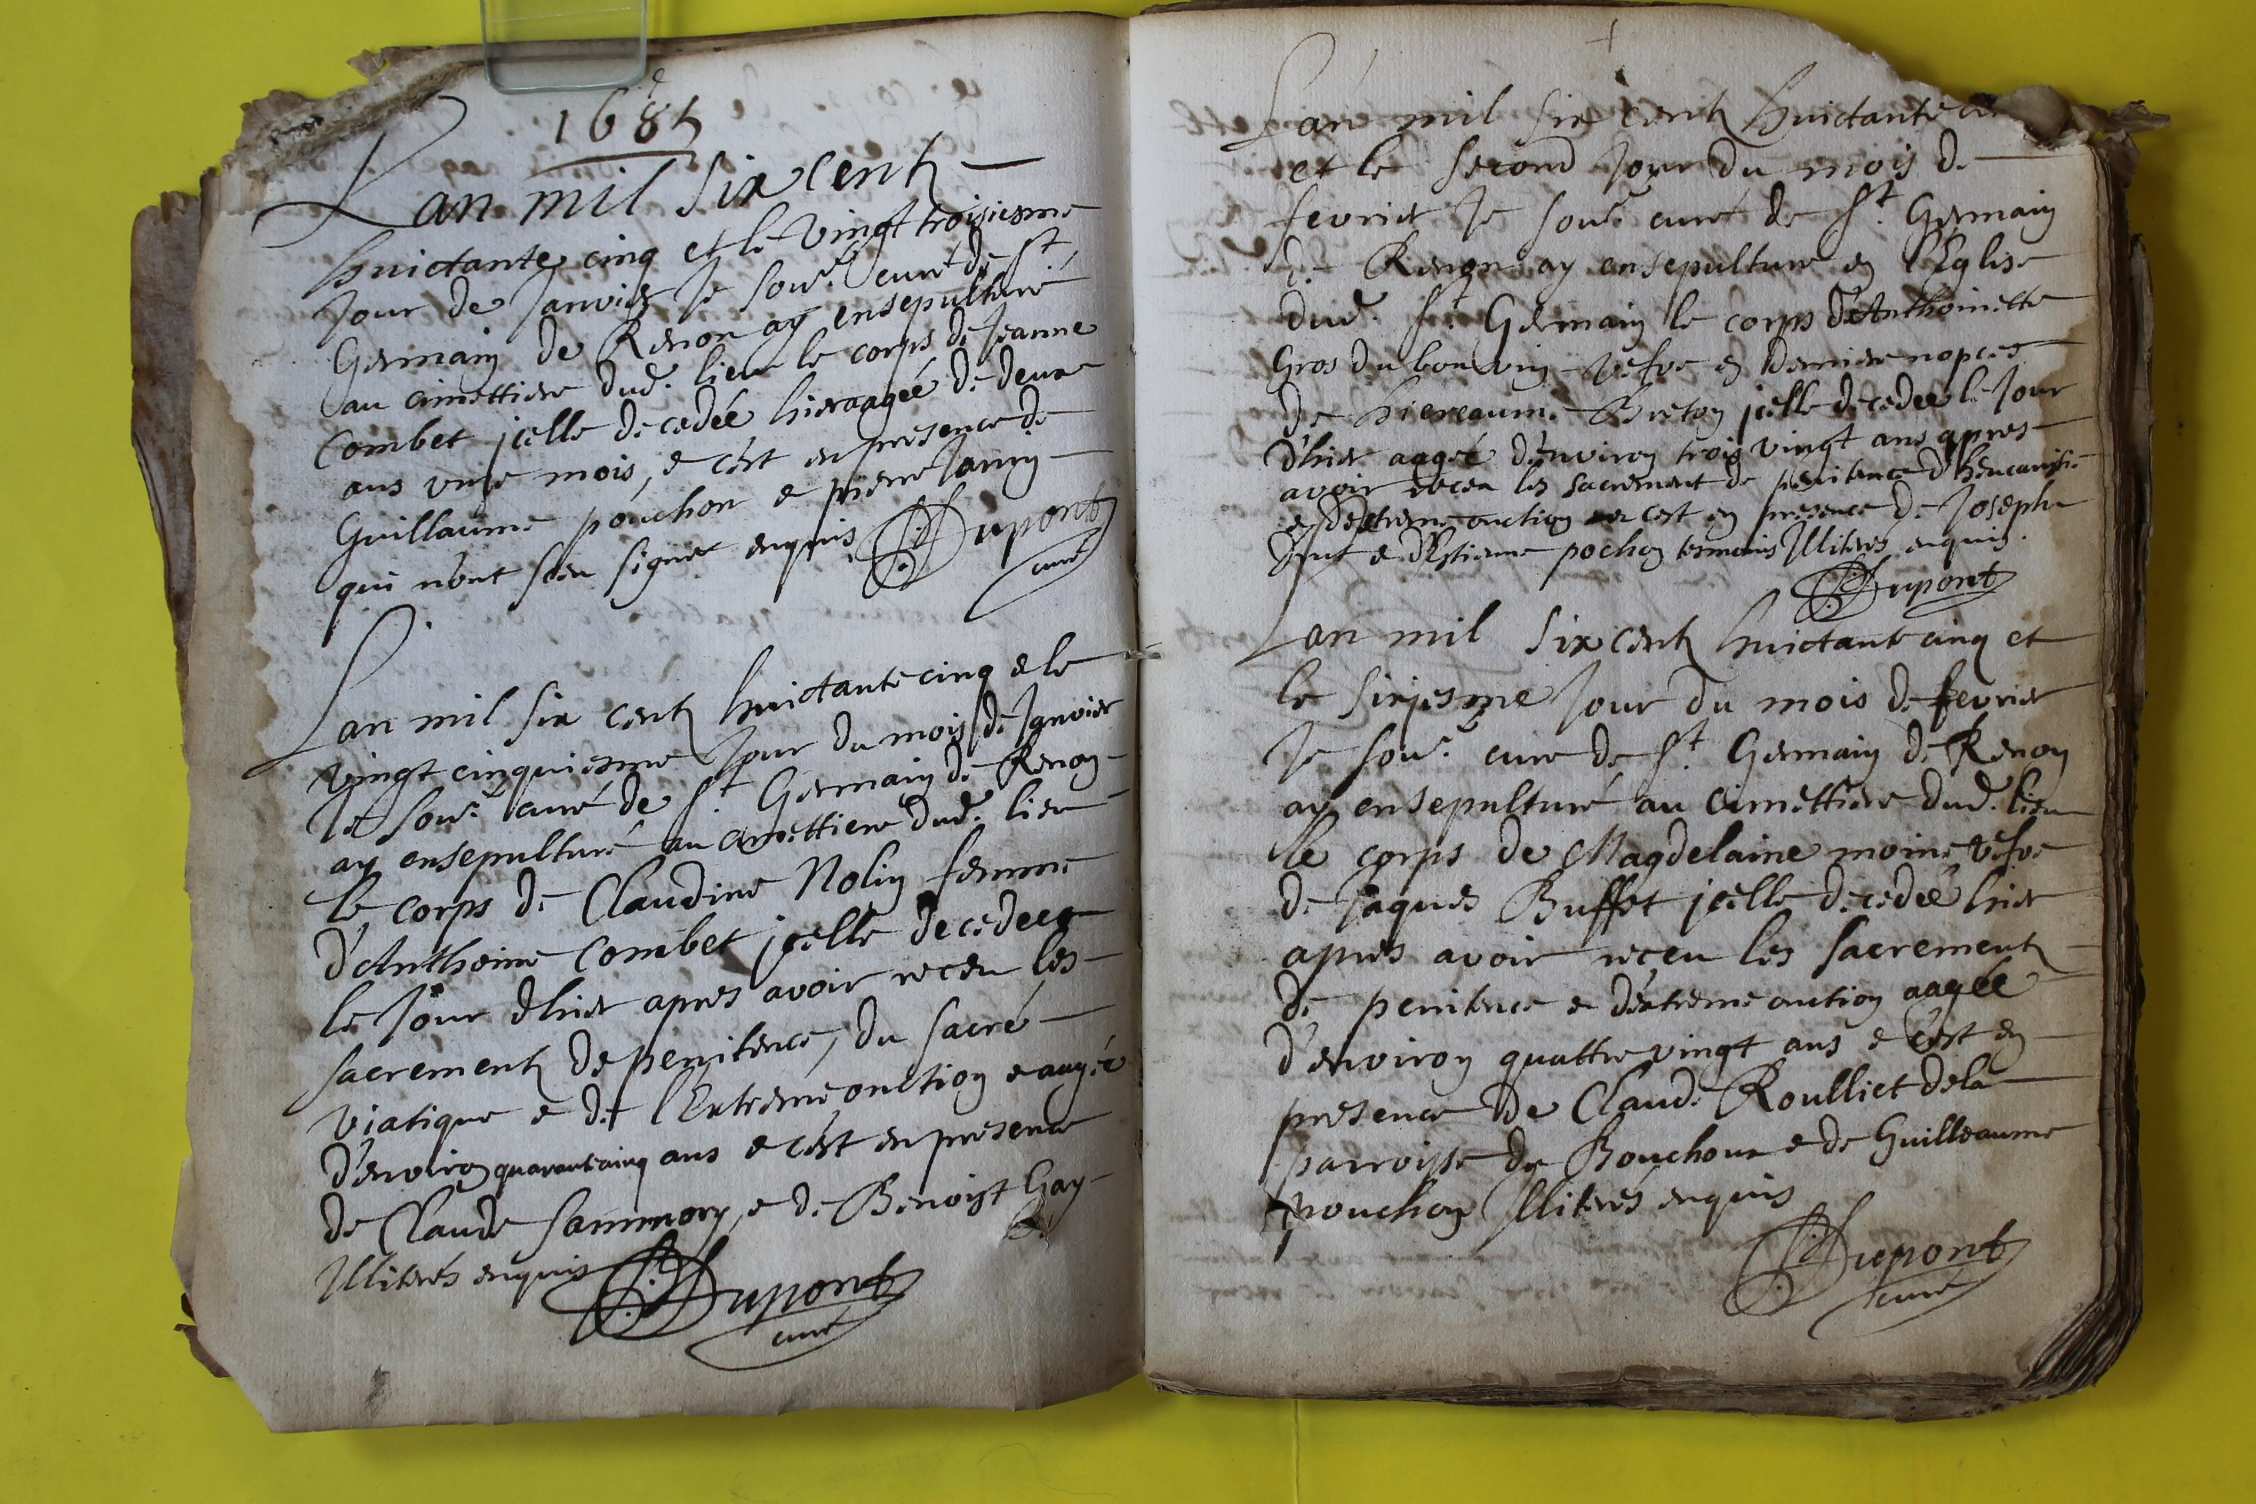 1685
Lan mil six cent
huictante cinq et le vingt troisiesme
Jour de Janvier Je sou.^r curé de S^t
Germain de Renon ay ensepulturé
au cimettiere dud. lieu le corps de Jeanne
Combet jcelle decedée hier aagée de deux
ans unze mois, e cést en presence de
Guillaume pouchon e pierre Janin
qui nont sceu signer enquis Dupont
curé
Lan mil six cent huictante cinq e le
vingt cinquiesme Jour du mois de Janvier
Je sou.^r curé de S^t Germain de Renon
ay ensepulturé au cimettiere dud. lieu
le corps de Claudine Nolin femme
d'Anthoine Combet jcelle decedeé
le Jour dhier apres avoir receu les
sacrement de penitence, du sacré
viatique e de l'Extreme onction e aagée
d'environ quarante cinq ans e cést en presence
de Claude Sammory, e de Benoist Gay
Illiterés enquis Dupont
curé
Lan mil six cent huictante
et le second Jour du mois de
fevrier Je sou.^r curé de S^t. Germain
de Renon ay ensepulturé en l'Eglise
dud. S^t. Germain le corps d'Anthoinette
Gros du bouvin vefve en derniere nopces
de Breton jcelle decedeé le Jour
d'hier aageé d'environ trois vingt ans apres
avoir receu les sacrement de penitence d'heucaristie
e d'extreme onction e cest en presence de Joseph
e d'Estienne pochon tesmoins Illiterés enquis.
Dupont
Lan mil six cent huictante cinq et
le sixjesme Jour du mois de fevrier
Je sou.^r curé de S^t. Germain de Renon
ay ensepulturé au cimettiere dud. lieu
le corps de Magdelaine moine vefve
de Jaques Buffet jcelle decedeé hier
apres avoir receu les sacrement
de penitence e déxtreme onction aageé
d'environ quattre vingt ans e cést en
presence de Claude Roulliet dela
parroisse de Bouchoux e de Guilleaume
pouchon Illiterés enquis
Dupont
curé